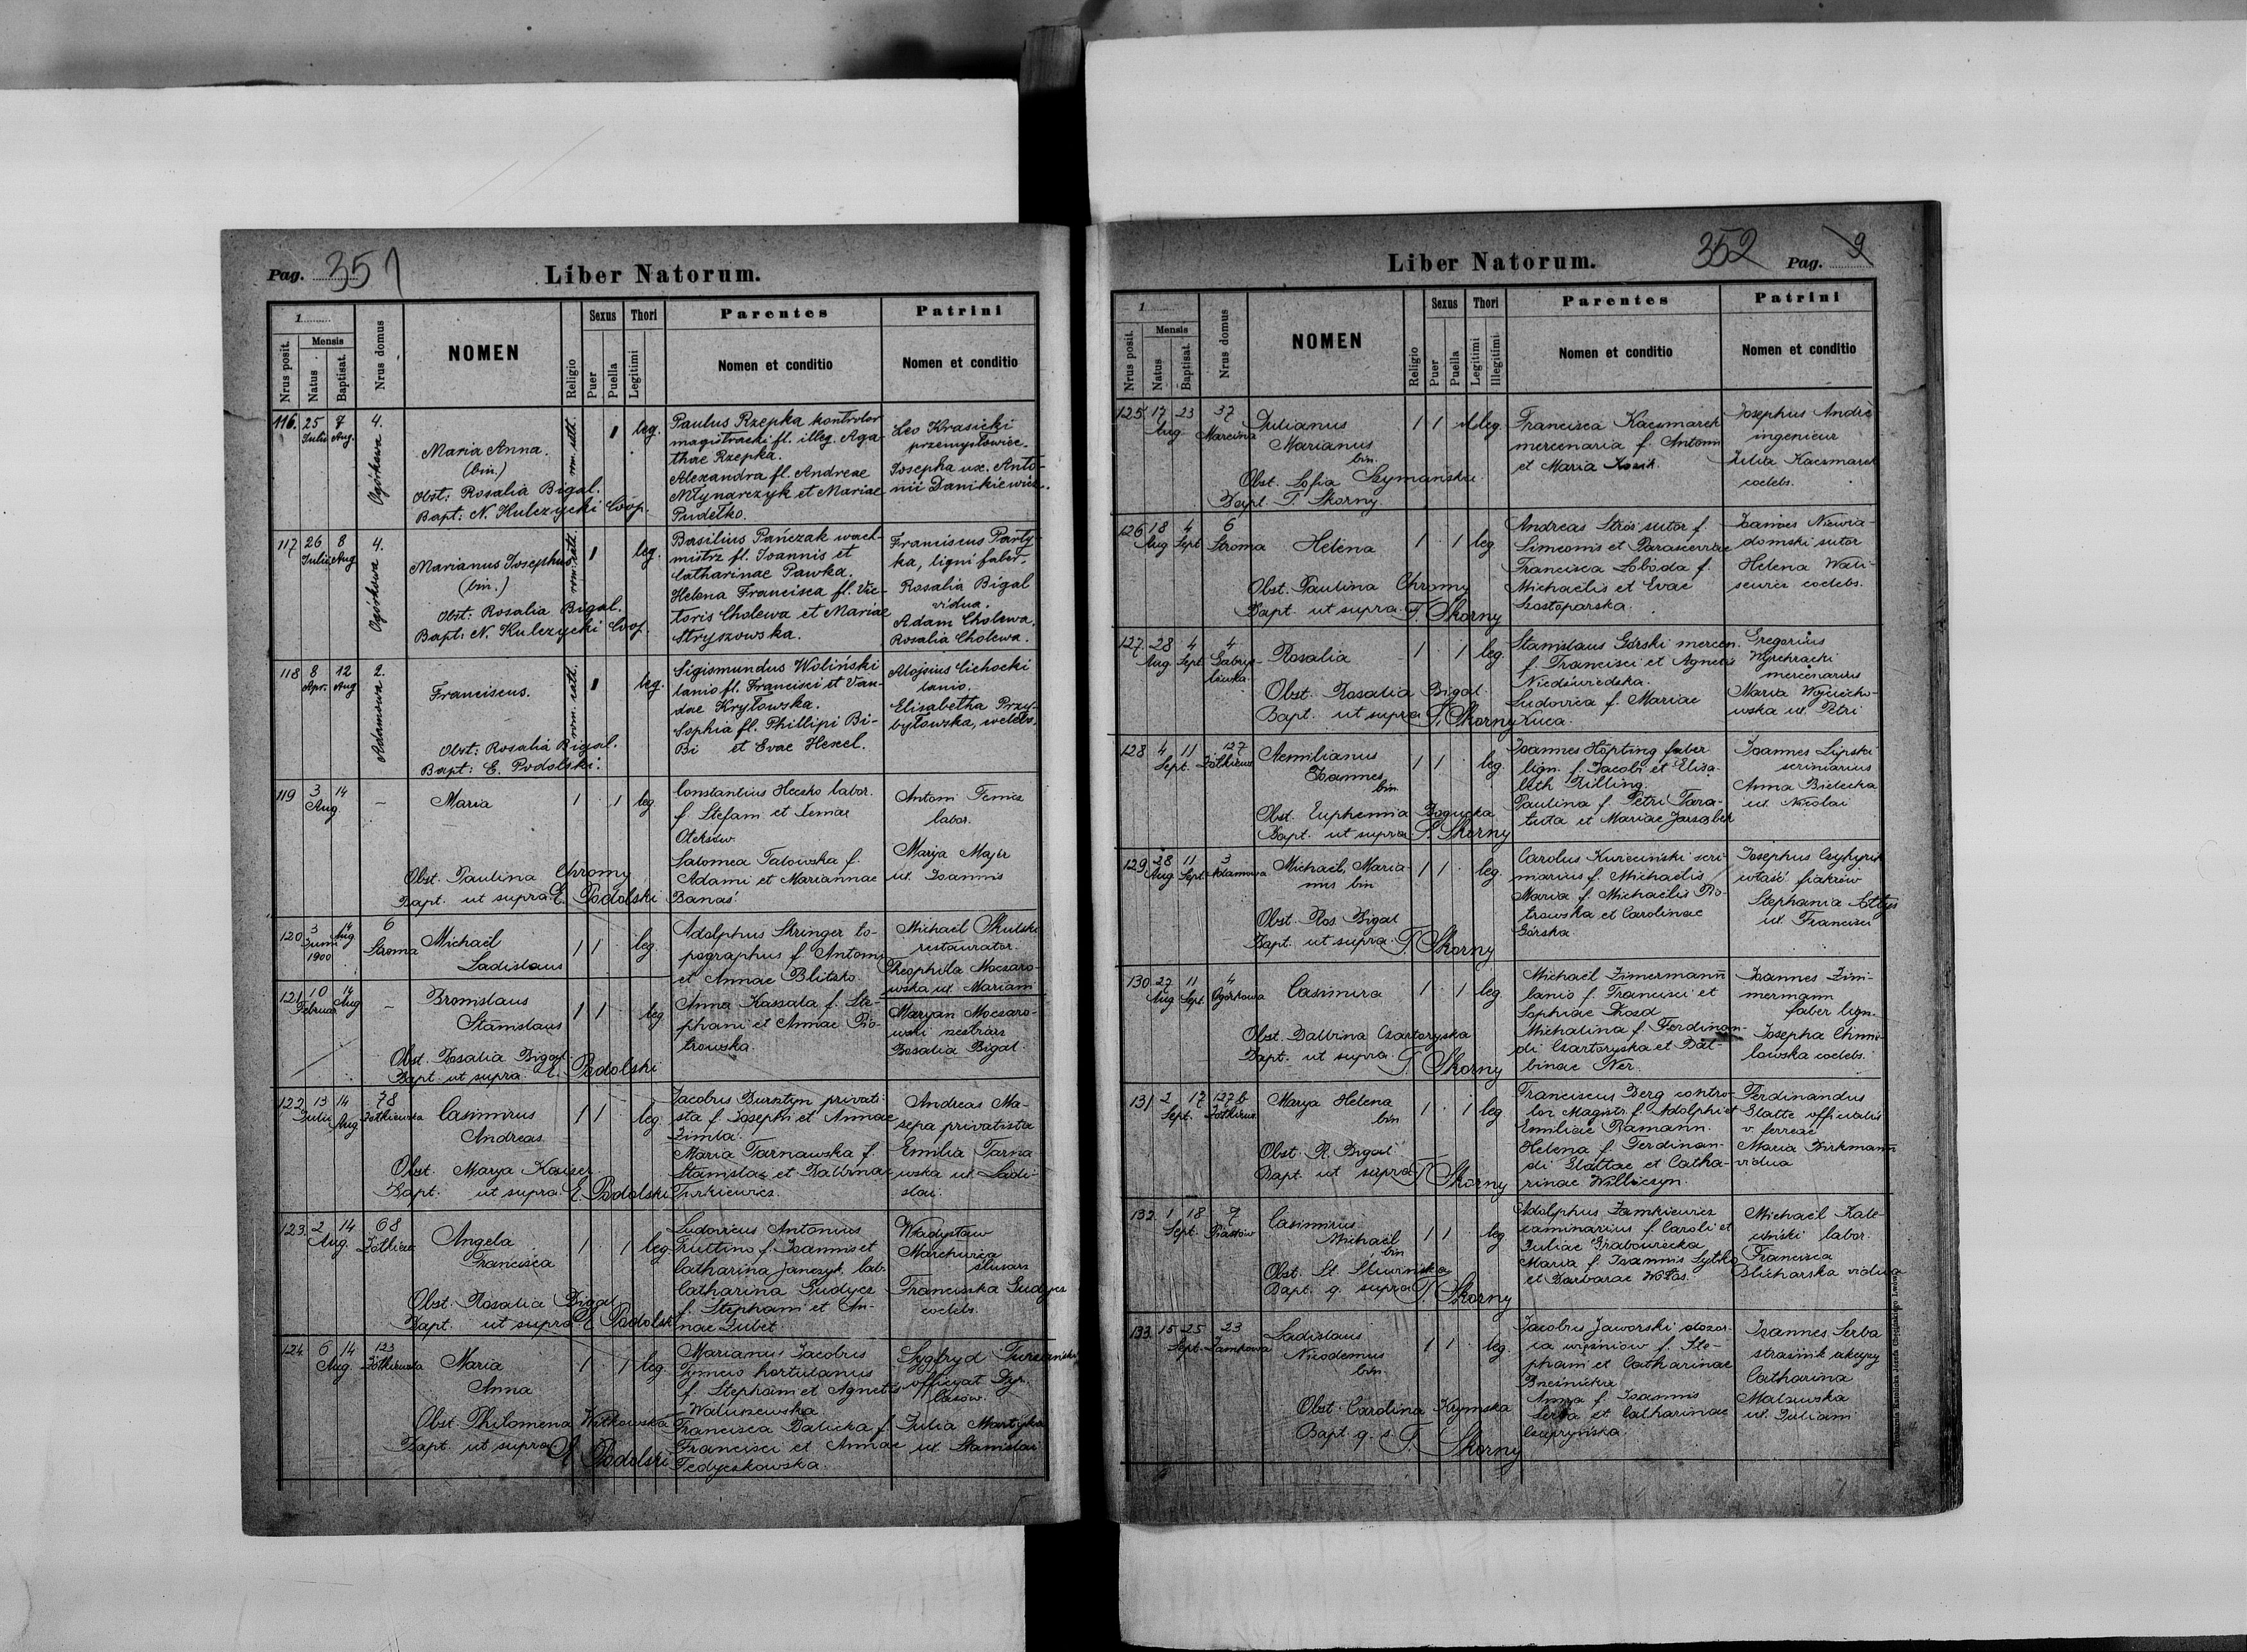 Pag. 351
Liber Natorum.
1
Nrus posit.
Mensis
Natus
Baptisat.
Nrus domus
NOMEN
Religio
Sexus
Puer
Puella
Thori
Legitimi
Parentes
Nomen et conditio
Patrini
Nomen et conditio
116. 25 Julii 7 Aug. 4. Ogórkowa
Maria Anna.
(bin.)
Obst: Rosalia Bigal.
Bapt: N. Kulczycki Coop.
rom. cath. 1 leg.
Paulus Rzepka kontrolor
magistracki fl. illeg. Aga-
thae Rzepka.
Alexandra fl. Andreae
Młynarczyk et Mariae
Pudełko.
Leo Krasicki
przemysłowiec.
Josepha ux. Anto-
nii Danikiewicz.
117 26 Julii 8 Aug 4. Ogórkowa
Marianus Josephus
(bin.)
Obst: Rosalia Bigal.
Bapt: N. Kulczycki Coop.
rom. cath. 1 leg.
Basilius Pańczak wach-
mistrz fl. Joannis et
Catharinae Pawka.
Helena Francisca fl. Vic-
toris Cholewa et Mariae
Stryszowska.
Franciscus Party-
ka, ligni faber.
Rosalia Bigal
vidua.
Adam Cholewa.
Rosalia Cholewa.
118 8 Apr. 12 Aug 2. Adamowa
Franciscus.
Obst: Rosalia Bigal.
Bapt: E. Podolski.
rom. cath. 1 leg.
Sigismundus Woliński
lanio fl. Francisci et Van-
dae Kryłowska.
Sophia fl. Phillipi Bi-
Bi et Evae Hexel.
Alojsius Cichocki
lanio.
Elisabetha Przy-
byłowska, coelebs.
119 3 14 Aug. –
Maria
Obst. Paulina Chromy
Bapt. ut supra E. Podolski
1 1 leg
Constantius Hecsko labor.
f. Stefani et Xeniae
Oleksów.
Salomea Talowska f.
Adami et Mariannae
Banaś.
Antoni Temia
labor.
Marija Majer
ux. Joannis
120 3 Junii 1900 14 Aug. 6 Stroma
Michaël
Ladislaus
1 1 leg.
Adolphus Skringer to-
pographus f. Antonii
et Annae Blitsko
Michael Skulski
restaurator.
Theophila Mocsaro-
wska ux. Mariani
121 10 Februar 14 Aug –
Bronislaus
Stanislaus
Obst. Rosalia Bigal
Bapt. ut supra. E. Podolski
1 1 leg
Anna Kassala f. Ste-
phani et Annae Pio-
trowska.
Maryan Mocsaro-
wski
Rosalia Bigal.
122 13 Julii 14 Aug 78 Żółkiewska
Casimirus
Andreas
Obst. Marya Kauser
Bapt. ut supra E. Podolski
1 1 leg.
Jacobus Bursztyn privati-
sta f. Josephi et Annae
Zimla.
Maria Tarnawska f.
Stanislai et Balbinae
Turkiewicz.
Andreas Ma-
sepa privatista
Emilia Tarna
wska ux. Ladi-
slai.
123. 2 14 Aug. 68
Angela
Francisca
Obst. Rosalia Bigal
Bapt. ut supra E Podolski
1 1 leg.
Ludovicus Antonius
Fruttino f. Joannis et
Catharina Janczyk lab.
Catharina Gudycz
f. Stephani et An-
nae Dubet
Władysław
Marchwica
ślusarz
Franciszka Gudycz
coelebs.
124. 6 14 Aug. 123 Żółkiewska
Maria
Anna
Obst. Philomena Witkowska
Bapt. ut supra E Podolski
1 1 leg.
Marianus Jacobus
Zimero hortulanus
f. Stephani et Agnetis
Waluszewska.
Francisca Balicka f.
Francisci et Annae
Fedyczkowska.
Sygfryd Turzański
officyał Dyr.
lasów.
Julia Martyka
ux. Stanislai
Liber Natorum.
352 Pag. 9
1
Nrus posit.
Mensis
Natus
Baptisat.
Nrus domus
NOMEN
Religio
Sexus
Puer
Puella
Thori
Legitimi
Illegitimi
Parentes
Nomen et conditio
Patrini
Nomen et conditio
125 17 23 Aug 37 Marcina
Julianus
Marianus
bin.
Obst. Sofia Szymańska.
Bapt. T. Skorny.
1 1 illeg.
Francisca Kacsmarek
mercenaria f. Antonii
et Maria Kosik.
Josephus Andrè
ingenieur
Julia Kacsmarek
coelebs.
126 18 Aug 4 Sept 6 Stroma
Helena
Obst. Paulina Chromy
Bapt. ut supra. T. Skorny
1 1 leg
Andreas Stros sutor f.
Simeonis et Parasceviae
Francisca Łoboda f.
Michaelis et Evae
Szostoparska.
Joannes Niewia
domski sutor
Helena Wali-
scurier coelebs.
127. 28 Aug 4 Sept 4 Gabrye-
lówka
Rosalia
Obst. Rosalia Bigal.
Bapt. ut supra T. Skorny
1 1 leg.
Stanislaus Górski mercen.
f. Francisci et Agnetis
Niedświedska.
Ludovica f. Mariae
Kuca.
Gregorius
mercenarius
Maria Wojciecho-
wska ux. Petri
128 4 11 Sept. 127 Żółkiews
Aemilianus
Joannes
bin
Obst. Euphemia Bogucka
Bapt. ut supra T. Skorny
1 1 leg.
Joannes Höpting faber
lign. f. Jacobi et Elisa-
beth Trilling.
Paulina f. Petri Tara-
tuta et Mariae Jarsabek
Joannes Lipski
scriniarius
Anna Bielecka
ux. Nicolai
129 28 Aug 11 Sept 3 Adamowa
Michaël Maria-
nus bin
Obst. Ros. Bigal
Bapt. ut supra T. Skorny
1 1 leg.
Carolus Kwieciński scri
niarius f. Michaelis
Maria f. Michaelis Pio-
trowska et Carolinae
Górska.
Josephus Czyhyrik
właść. fiakrów
Stephania
ux. Francisci
130 27 Aug 11 Sept. 4 Ogórkowa
Casimira
Obst. Balbina Czartoryska
Bapt. ut supra T. Skorny
1 1 leg.
Michaël Zimermann
lanio f. Francisci et
Sophiae Drosd
Michalina f. Ferdinan-
di Czartoryska et Bal-
binae Ner.
Joannes Zim-
mermann
faber lign.
Josepha Chmie-
lowska coelebs.
131 2 17 Sept. 127 b Żółkiews
Marya Helena
bin
Obst. R. Bigal
Bapt. ut supra T. Skorny
1 1 leg
Franciscus Berg contro-
lor Magistr. f. Adolphi et
Emiliae Ramann.
Helena f. Ferdinan-
di Glattae et Catha-
rinae Williczyn.
Ferdinandus
Glatte officialis
v. ferreae
Maria Birkmann
vidua
132 1 18 Sept. 7 Piastów
Casimirus
Michaël
bin
Obst. St. Śliwińska
Bapt. q. supra T. Skorny
1 1 leg
Adolphus Zamkiewicz
caminarius f. Caroli et
Juliae Grabowiecka
Maria f. Joannis Łytko
et Barbarae Włos.
Michaël Kale-
ciński labor.
Francisca
Blicharska vidua
133. 15 25 Sept. 23 Zamkowa
Ladislaus
Nicodemus
bin.
Obst. Carolina Krymska
Bapt. q. s. T. Skorny
1 1 leg.
Jacobus Jaworski dozor-
ca więźniów f. Ste-
phani et Catharinae
Brześnicka
Anna f. Joannis
Serba et Catharinae
Czupryńska.
Joannes Serba
strażnik akcyzy
Catharina
Malawska
ux. Juliani